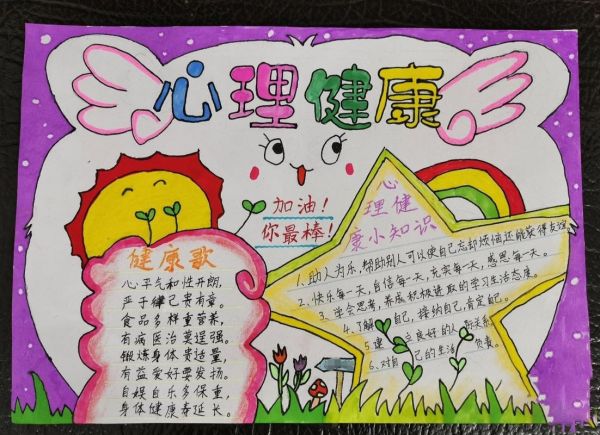 心理健康
加油！
你最棒！
健康歌
心平气和性开朗，
严于律己贵有章。
食品多样重营养，
有病医治莫逞强。
锻炼身体贵适量，
有益爱好要发扬。
自娱自乐多保重，
身体健康寿延长。
心
理健
康小知识
1、助人为乐，帮助别人可以使自己忘却烦恼还能获得友谊
2、快乐每一天，自信每一天，充实每一天，感恩每一天。
3、学会思考，养成积极进取的学习生活态度。
4、了解自己，接纳自己，肯定自己。
5、建立良好的人际关系。
6、对自己的生活负责。